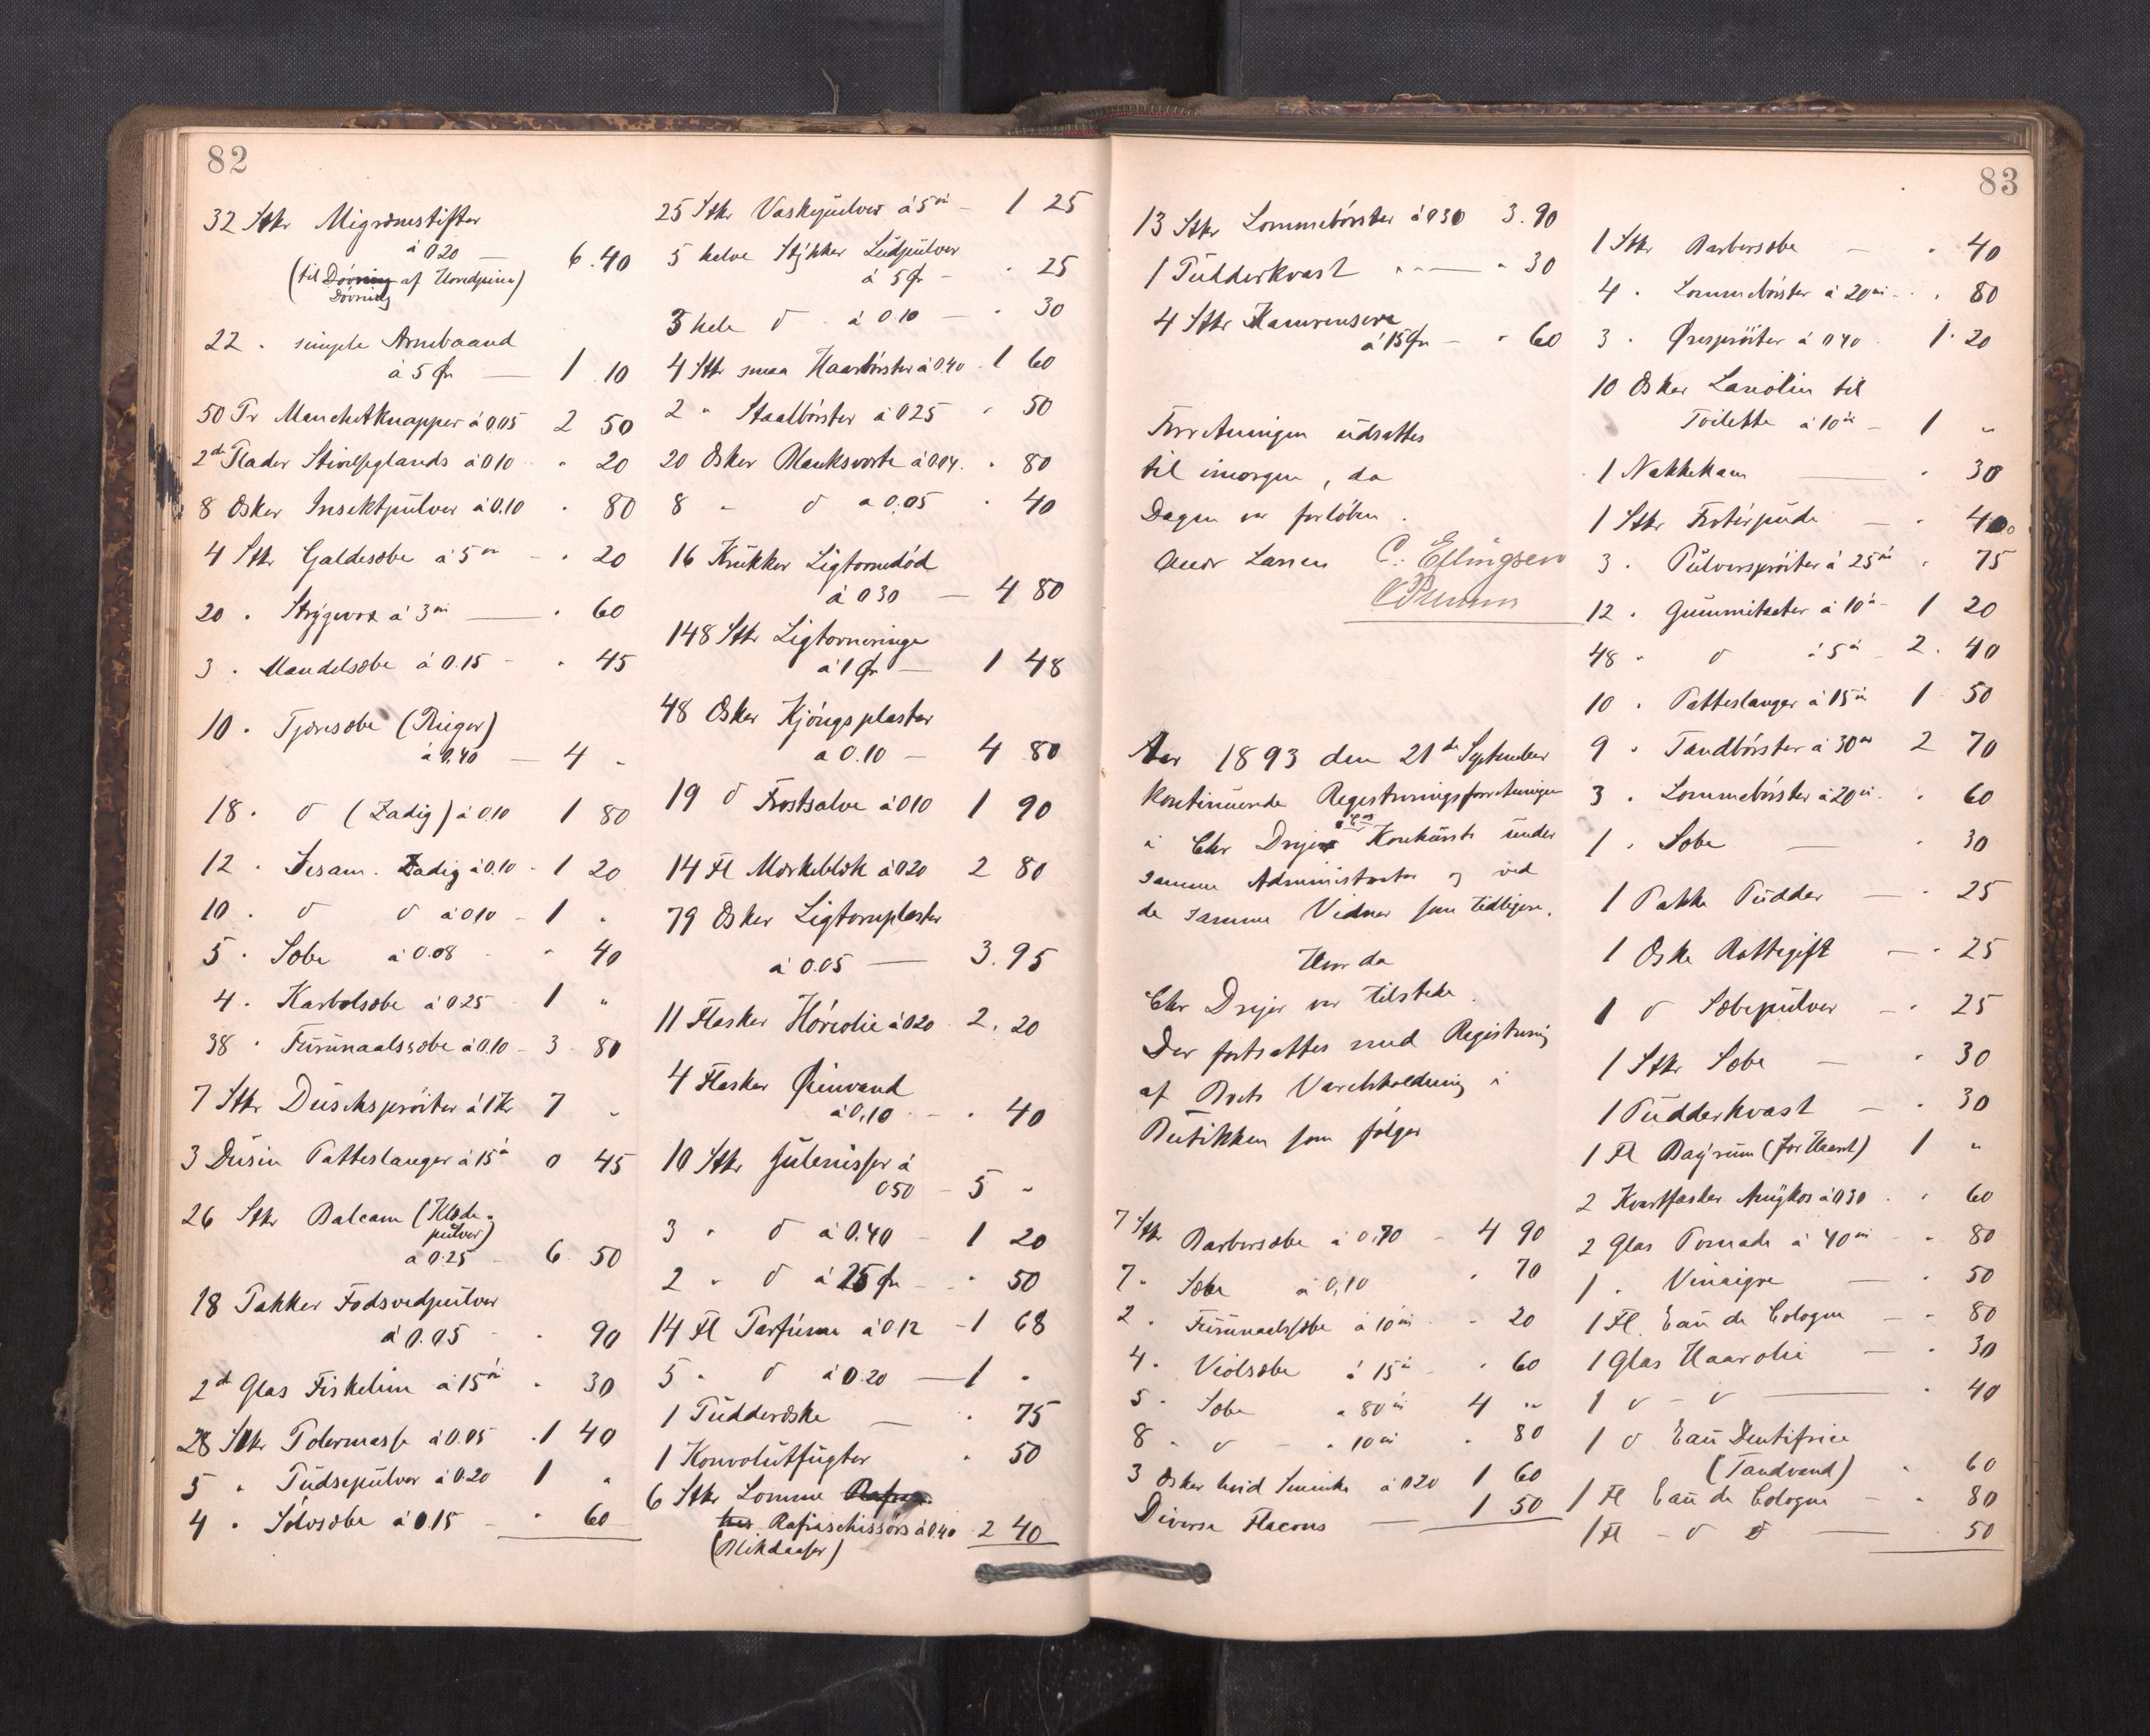 82
32 Stkr Migrænestifter
à 0 20 — 6.40
(til Døvning af Hovedpine)
Døvning
22 " simple Armbaand
à 5 Øre — 1 10
50 Pr Manchetknapper à 0.05 2 50
2de Plader Stivelseglands à 0 10 " 20
8 Æsker Insektpulver à 0.10 " 80
4 Stkr Galdesæbe à 5 ør - " 20
20 " Strygevox à 3 ør — " 60
3 " Mandelsæbe à 0.15 - " 45
10 " Tjæresæbe (Rieger)
à 0,40 — 4 "
18 " d (Zadig) à 0 10 1 80
12 " Sesam. Zadig à 0.10 - 1 20
10 " d d à 0 10 - 1 "
5 " Sæbe à 0.08 - " 40
4 " Karbolsæbe à 0 25 1 "
38 " Furunaalssæbe à 0.10 - 3 80
7 Stkr Duschsprøiter à 1 Kr 7 "
3 Dusin Patteslanger à 15 ø 0 45
26 Stkr Balcam (Klæde-
pulver)
à 0.25 - 6 50
18 Pakker Fodsvedpulver
à 0.05 - " 90
2de Glas Fiskelim à 15 ør " 30
28 Stkr Polermasse à 0.05 " 1 40
5 " Pudsepulver à 0 20 1 "
4 " Sølvsæbe à 0 15 - " 60
25 Stkr Vaskepulver à 5 ør - 1 25
5 halve Stykker Ludpulver
à 5 Ør - " 25
3 hele d à 0 10 — " 30
4 Stkr smaa Haarbørster à 0.40 1 60
2 " Staalbørster à 0 25 " 50
20 Æsker Blanksværte à 0.04 " 80
8 " d a 0.05 " 40
16 Krukker Ligtornedød
à 0 30 — 4 80
148 Stkr Ligtorneringe
à 1 Øre — 1 48
48 Æsker Kjöngsplaster
a 0.10 — 4 80
19 d Frostsalve à 0 10 1 90
14 Fl Mærkeblæk à 0 20 2 80
79 Æsker Ligtornplaster
à 0.05 — 3.95
11 Flasker Høreolie à 0 20 2.20
4 Flasker Øienvand
à 0,10 - " 40
10 Stkr Julenisser à
0 50 - 5 "
3 " d à 0.40 - 1 20
2 " d à 25 Øre - " 50
14 Fl Parfume à 0 12 - 1 68
5 " d à 0.20 — 1 "
1 Pudderæske — " 75
1 Konvolutfugter " 50
6 Stkr Lomme
Rafraichissörs à 0.40 2 40
(Blikdaaser)
83
13 Stkr Lommebørster à 0 30 3.90
1 Pudderkvast " — " 30
4 Stkr Kamrensere
à 15 Øre — " 60
Forretningen udsattes
til imorgen, da
Dagen var forløben.
Andr Larsen C. Ellingsen
Aar 1893 den 21de September
kontinuerede Registreringsforretningen
i Chr Drejers Konkursbo under
samme Administrator og ved
de samme Vidner som tidligere.
Hvor da
Chr Drejer var tilstede.
Der fortsattes med Registrering
af Boets Varebeholdning i
Butikken som følger
7 Stkr Barbersæbe à 0,70 - 4 90
7 " Sæbe à 0,10 " 70
2 " Furunaalssæbe à 10 ør - " 20
4 " Violsæbe à 15 ø " 60
5 " Sæbe a 80 ør 4 "
8 " d - " 10 ør " 80
3 Æsker hvid Sminke à 0 20 1 60
Diverse Flacons — 1 50
1 Stkr Barbersæbe — " 40
4 " Lommebørster à 20 ør - " 80
3 " Øresprøiter à 0 40 1.20
10 Æsker Lanolin til
Toilette à 10 ør - 1 "
1 Nakkekam — " 30
1 Stkr Frotérpude — " 40
3 " Pulversprøiter à 25 ør " 75
12 " Gummitaater à 10 ø - 1 20
48 " d à 5 ø - 2.40
10 " Patteslanger à 15 ø 1 50
9 " Tandbørster à 30 ør 2 70
3 " Lommebørster à 20 ør " 60
1 " Sæbe — " 30
1 Pakke Pudder — " 25
1 Æske Rottegift — " 25
1 d Sæbepulver — " 25
1 Stkr Sæbe — " 30
1 Pudderkvast — " 30
1 Fl Bayrum (for Haaret) 1 "
2 Kvartflasker Amykos à 0 30 " 60
2 Glas Pomade à 40 ør - " 80
1 " Vinaigre — " 50
1 Fl. Eau de Cologne — " 80
1 Glas Haarolie — " 30
1 d - d — " 40
1 d Eau Dentifrice
(Tandvand) " 60
1 Fl Eau de Cologne — " 80
1 Fl - d d — " 50